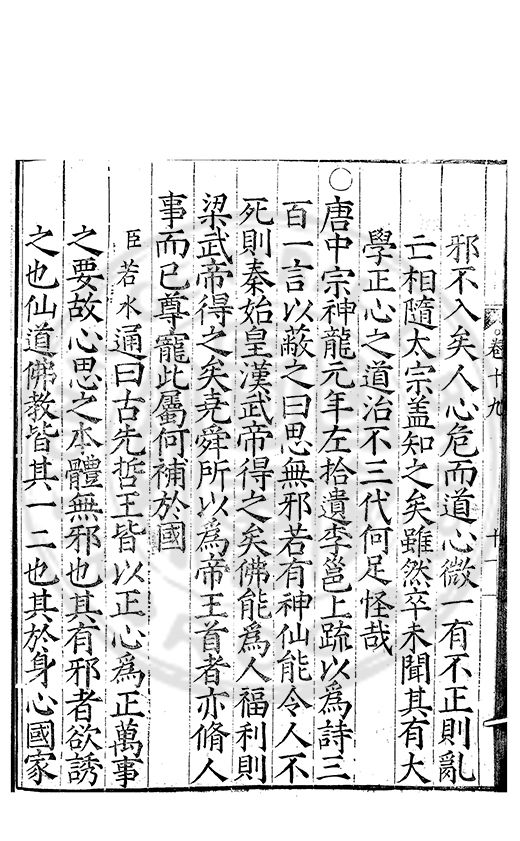 邪不入矣人心危而道心微一有不正則亂
亡相隨太宗盖知之矣雖然卒未聞其有大
學正心之道治不三代何足怪哉
〇唐中宗神龍元年左拾遺李邕上疏以爲詩三
百一言以蔽之曰思無邪若有神仙能令人不
死則秦始皇漢武帝得之矣佛能爲人福利則
梁武帝得之矣堯舜所以爲帝王首者亦脩人
事而已尊寵此屬何補於國
臣若水通曰古先哲王皆以正心爲正萬事
之要故心思之本體無邪也其有邪者欲誘
之也仙道佛教皆其一二也其於身心國家
卷十九
十一